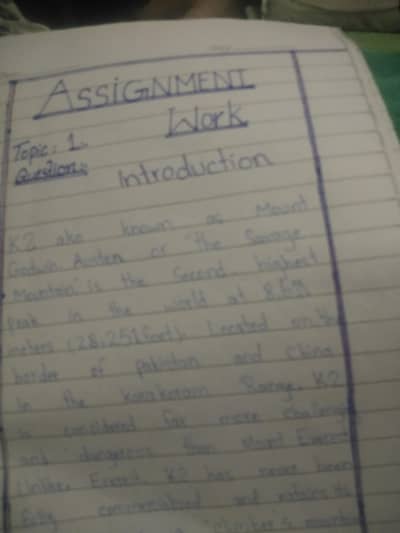 ASSIGNMENT
Work
Topic: 1.
Question:
Introduction
K2 also known as Mount
Godwin Austen or "the Savage
Mountain" is the Second highest
Peak in the world at
meters (28,251 feet). Located on the
border of pakistan and China
in the Karakoram Range, K2
is considered far more challeng
and dangerous than Mount Everest
Unlike Everest, K2 has never been
fully commercialized and retains its
mountain